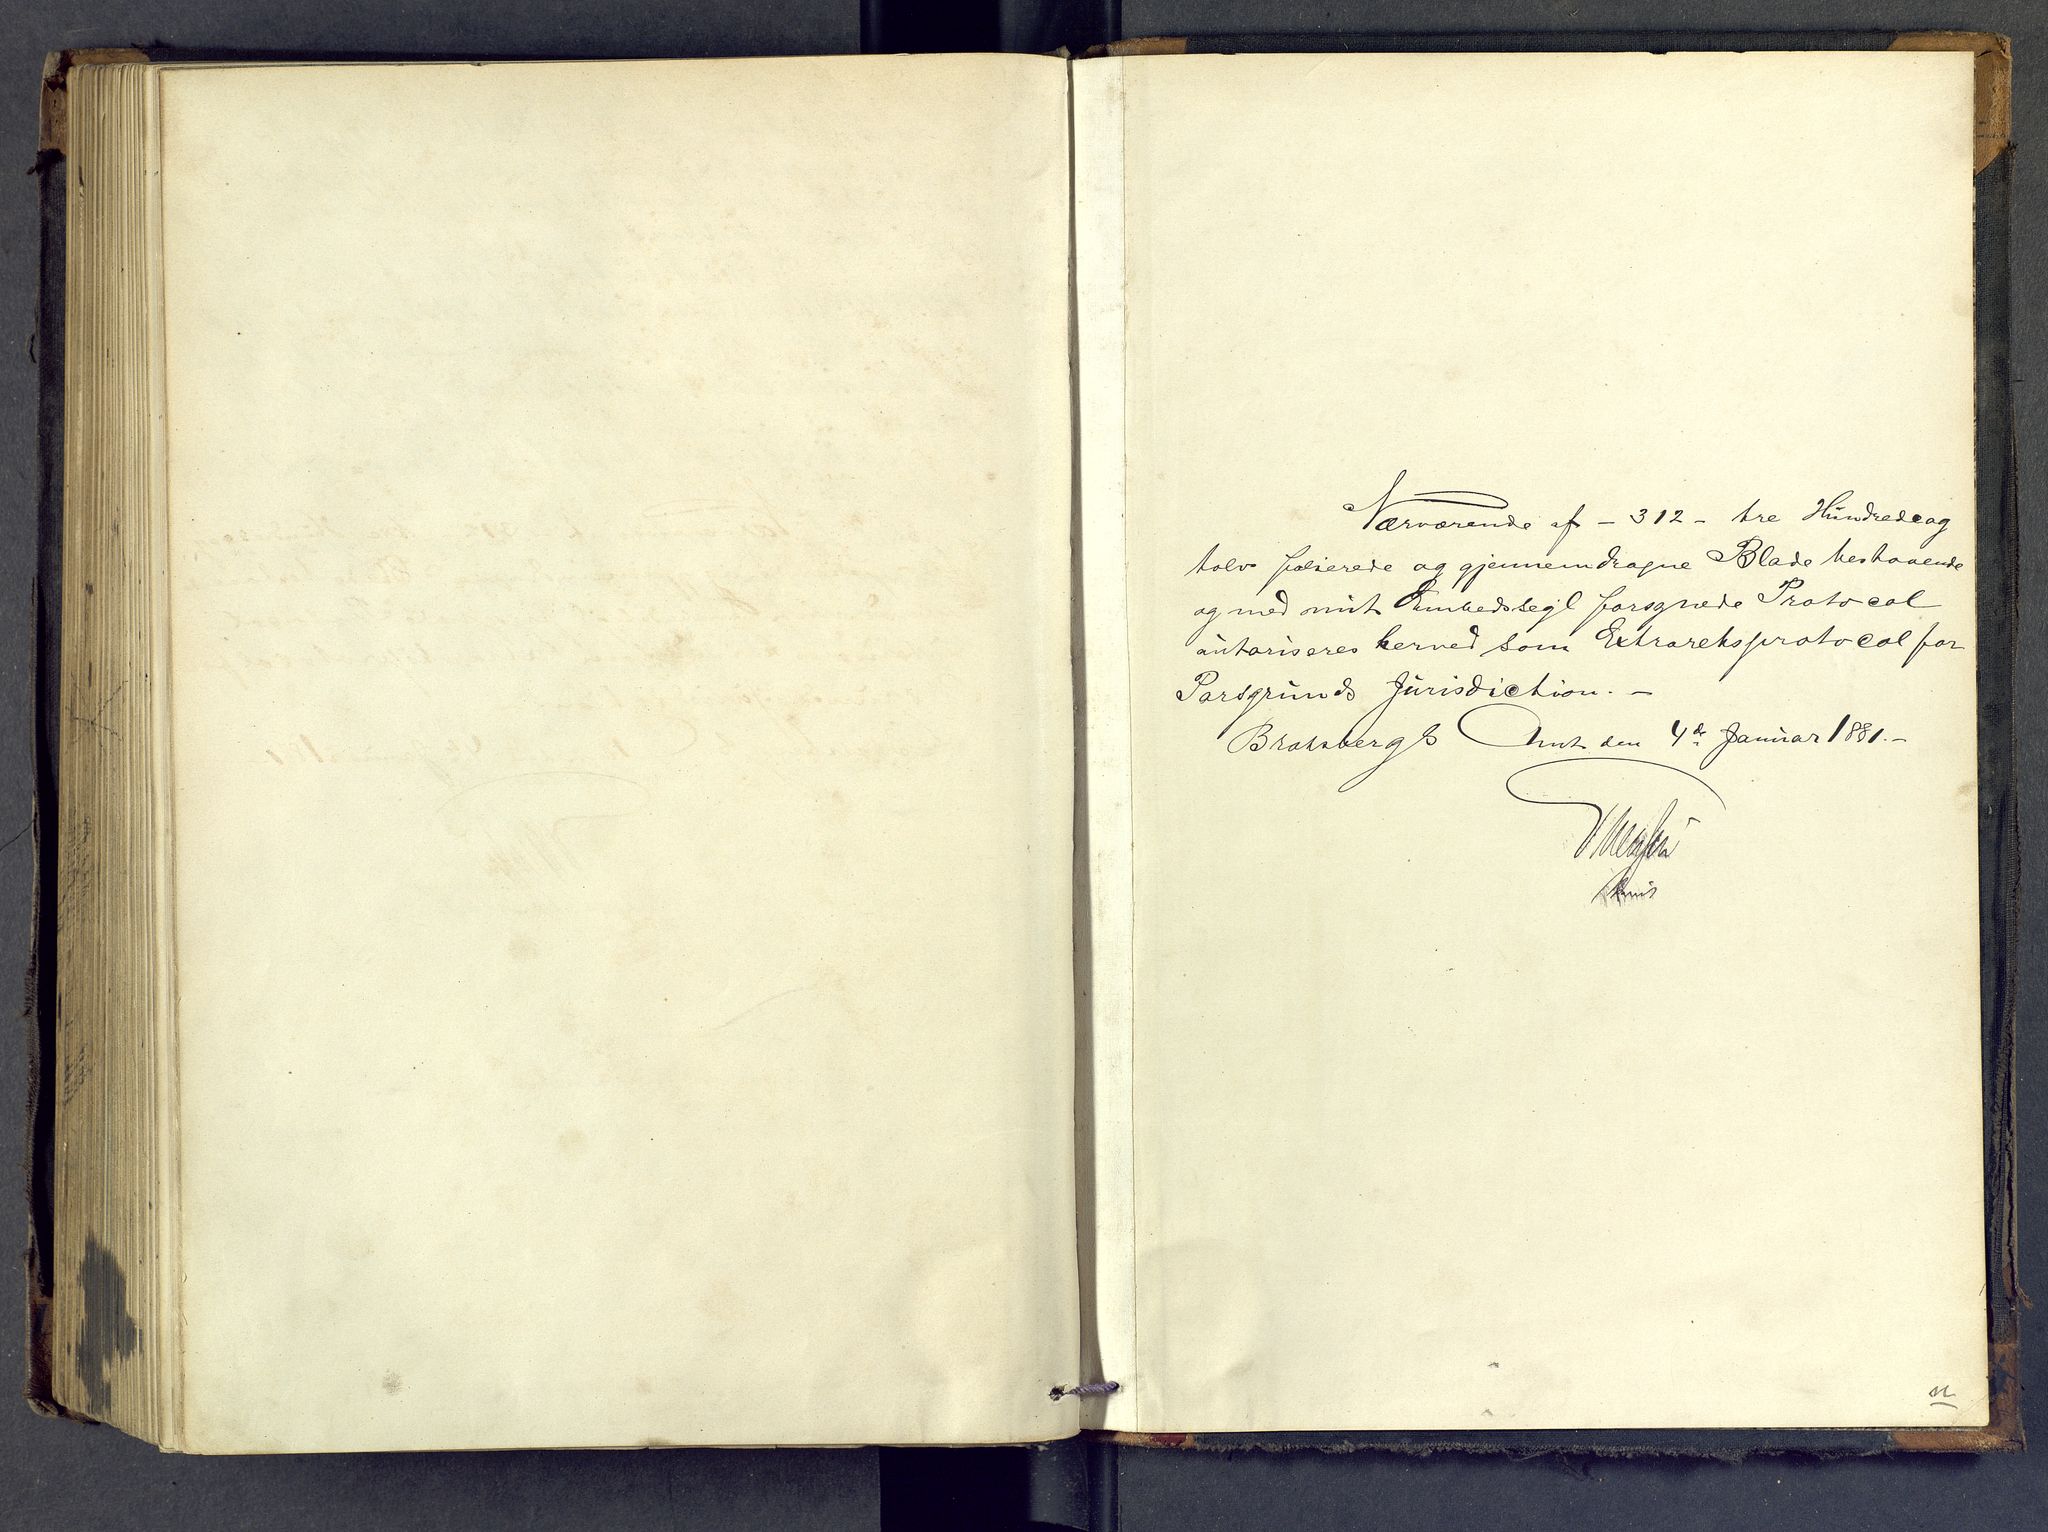 Nærværende af – 312 – tre Hundrede og
tolv folierede og gjennemdragne Blade bestaaende
og med mit Embedssegl forsynede Protocol
autoriseres herved som Extraretsprotocol for
Porsgrunds Jurisdiction. –
Bratsbergs Amt den 4de Januar 1881. –